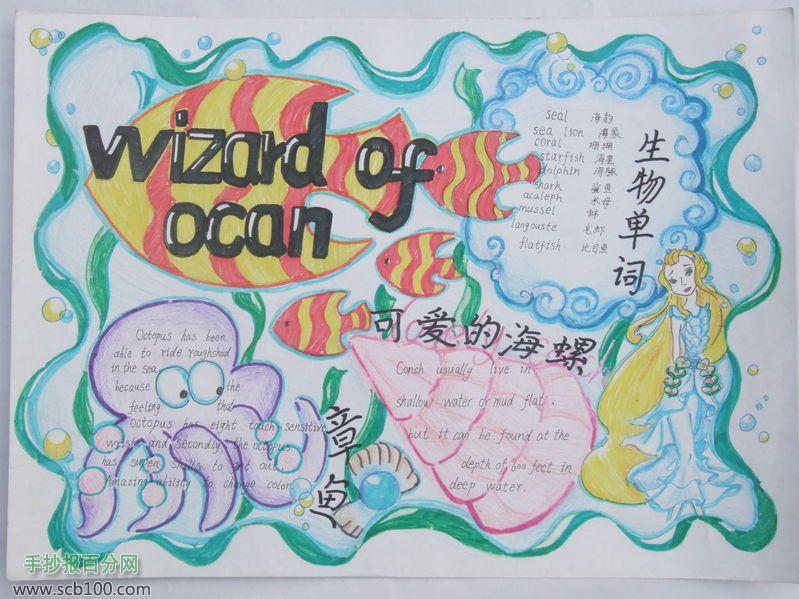 wizard of
ocan
seal 海豹
sea lion 海象
coral 珊瑚
starfish 海星
dolphin 海豚
shark 鲨鱼
acaleph 水母
mussel 蚌
langouste 龙虾
flatfish 比目鱼
生物单词
可爱的海螺
Octopus has been
able to ride roughshod
in the sea,
because the
feeling that
Octopus has eight touch sensitive
wrists and secondly the octopus
has super skills to get out.
Amazing ability to change color
章鱼
Conch usually live in
shallow water or mud flat.
but it can be found at the
depth of 600 feet in
deep water.
手抄报百分网
www.scb100.com